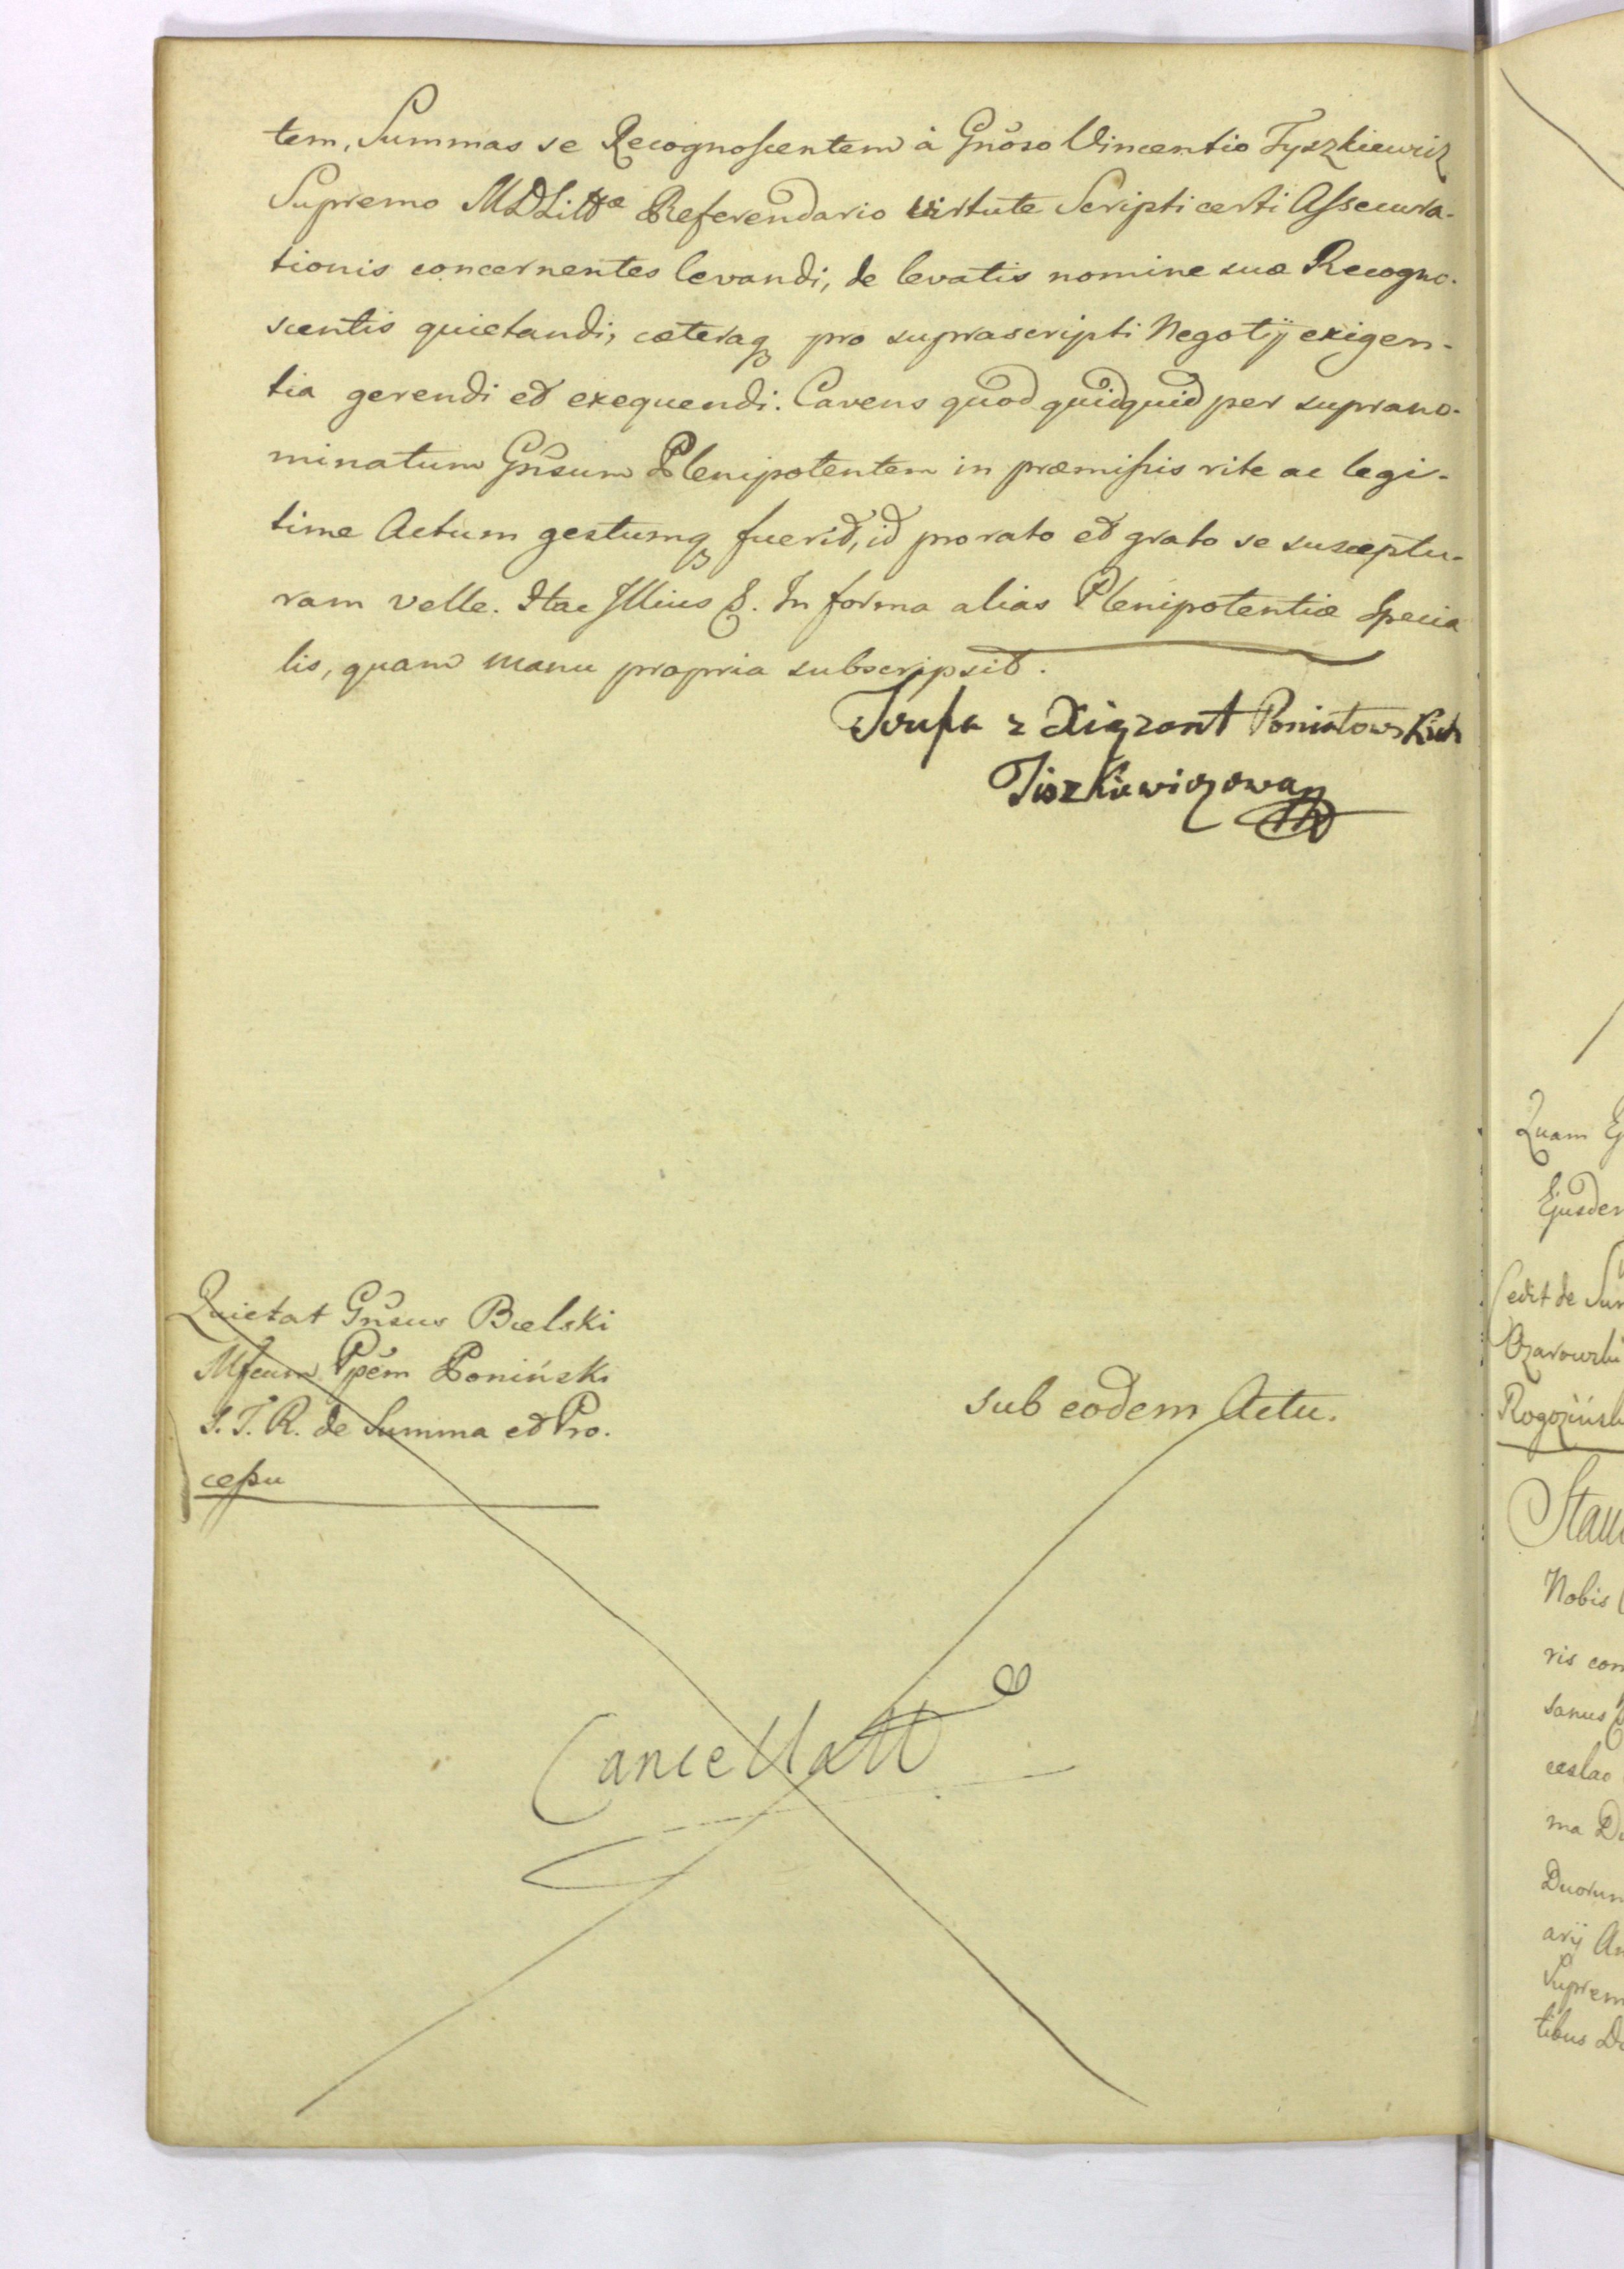 tem, Summas se Recognoscentem à Gnõso Vincentio Tyszkiewicz
Supremo MDLittæ Referendario virtute Scripti certi Assecura-
tionis concernentes levandi, de levatis nomine suæ Recogno-
scentis quietandi, cæteraq pro suprascripti Negotij exigen-
tia gerendi et exequendi. Cavens quod quidquid per suprano-
minatum Gnsum Plenipotentem in præmissis rite ac legi-
time Actum gestumq fuerit, id pro rato et grato se susceptu-
ram velle. Itae Illius In forma alias Plenipotentiæ Specia
lis, quam manu propria subscripsit.
z Xiązont Poniatowskich
Tiszkiewiczowa
Quietat Gnsus Bielski
Mfcum Ppem Poniński
S. T. R. de Summa et Pro-
cessu
sub eodem Actu.
Cancellatt
Quam
Ejusdem
Cedit de Sum
Ozarowski
Rogozińsk
Stan
Nobis
ris con
sanus
ceslao
ma Du
Duorum
arij An
Suprem
tibus De